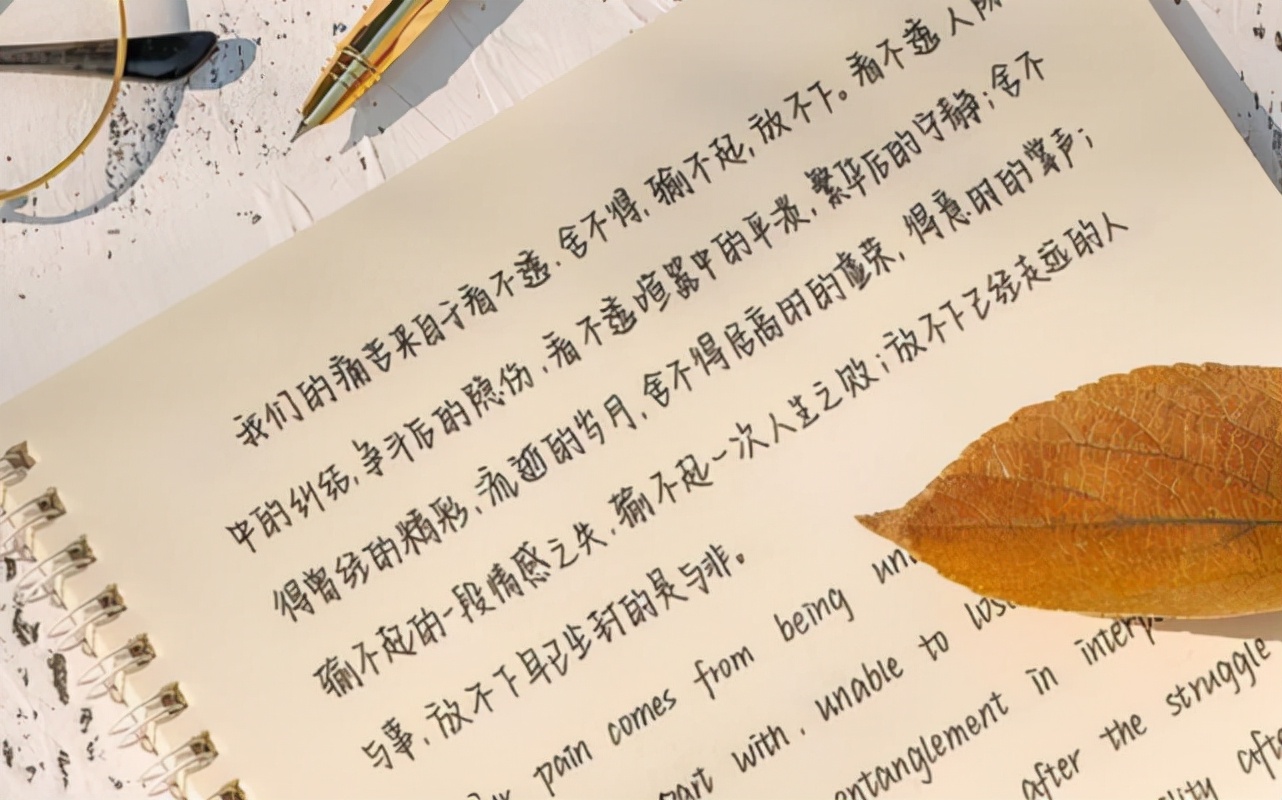 我们的痛苦来自于看不透,舍不得,输不起,放不下。看不透人际
中的纠结,争斗后的隐伤,看不透喧嚣中的平淡,繁华后的宁静;舍不
得曾经的精彩,流逝的岁月,舍不得居高时的虚荣,得意时的掌声;
输不起的一段情感之失,输不起一次人生之败;放不下已经走远的人
与事,放不下早已尘封的是与非。
pain comes from being
with, unable to
entanglement in
after the struggle